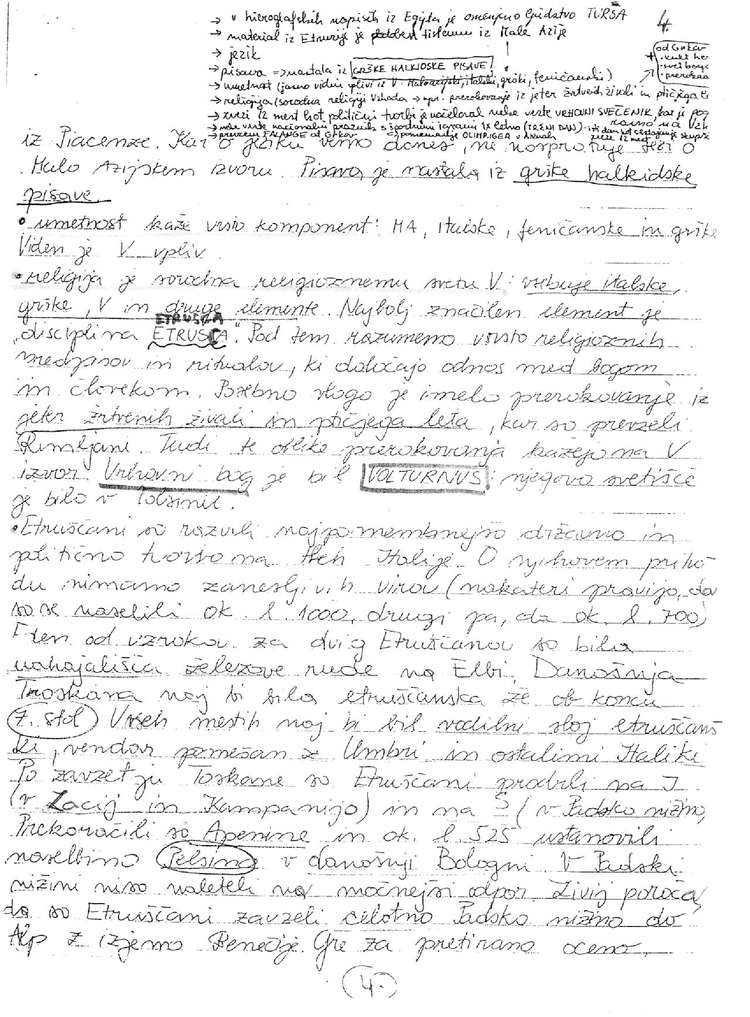 → v hieroglifskih napisih iz Egipta je omenjeno ljudstvo TURŠA
4.
→ material iz Etrurije je podoben tistemu iz Male Azije
→ jezik
→ pisava => nastala iz GRŠKE HALKIDSKE PISAVE!
→ umetnost (jasno vidni vplivi iz V: Maloazijski, italski, grški, feničanski)
→ religija (sorodna religiji Vzhoda → npr. prerokovanje iz jeter žrtvenih živali in ptičjega
od Grkov
→ zvezi 12 mest kot politični tvorbi je načeloval neke vrste VRHOVNI SVEČENIK, kar je
→ neke vrste nacionalni praznik s športnimi igrami 1x letno
→ prevzem FALANGE od Grkov
iz Piacenze. Kar o jeziku vemo danes, ne nasprotuje tezi o
Malo Azijskem izvoru. Pisava je nastala iz grške halkidske
pisave.
• umetnost kaže vrsto komponent: MA, Italske, feničanske in grške
Viden je V vpliv.
• religija je sorodna religioznemu svetu V: vsebuje italske,
grške, V in druge elemente. Najbolj značilen element je
ETRUSCA
"disciplina ETRUSCA". Pod tem razumemo vrsto religioznih
predpisov in ritualov, ki določajo odnos med bogom
in človekom. Posebno vlogo je imelo prerokovanje iz
jeter žrtvenih živali in ptičjega leta, kar so prevzeli
Rimljani. Tudi te oblike prerokovanja kažejo na V
izvor. Vrhovni bog je bil VOLTURNUS; njegovo svetišče
je bilo v
• Etruščani so razvili najpomembnejšo državno in
politično tvorbo na tleh Italije. O njihovem priho-
du nimamo zanesljivih virov (nekateri pravijo, da
so se naselili ok. l. 1000, drugi pa, da ok. l. 700)
Eden od vzrokov za dvig Etruščanov so bila
nahajališča železove rude na Elbi. Današnja
Toskana naj bi bila etruščanska že ob koncu
7. stol V vseh mestih naj bi bil vodilni sloj etruščans
ki, vendar pomešan z Umbri in ostalimi Italiki
Po zavzetju Toskane so Etruščani prodrli na J
(v Lacij in Kampanijo) in na S (v Padsko nižino,
Prekoračili so Apenine in ok. l. 525 ustanovili
naselbino Felsina v današnji Bologni. V Padski
nižini niso naleteli na močnejši odpor. Livij poroča,
da so Etruščani zavzeli celotno Padsko nižino do
Alp z izjemo Benečije. Gre za pretirano oceno,
(4.)